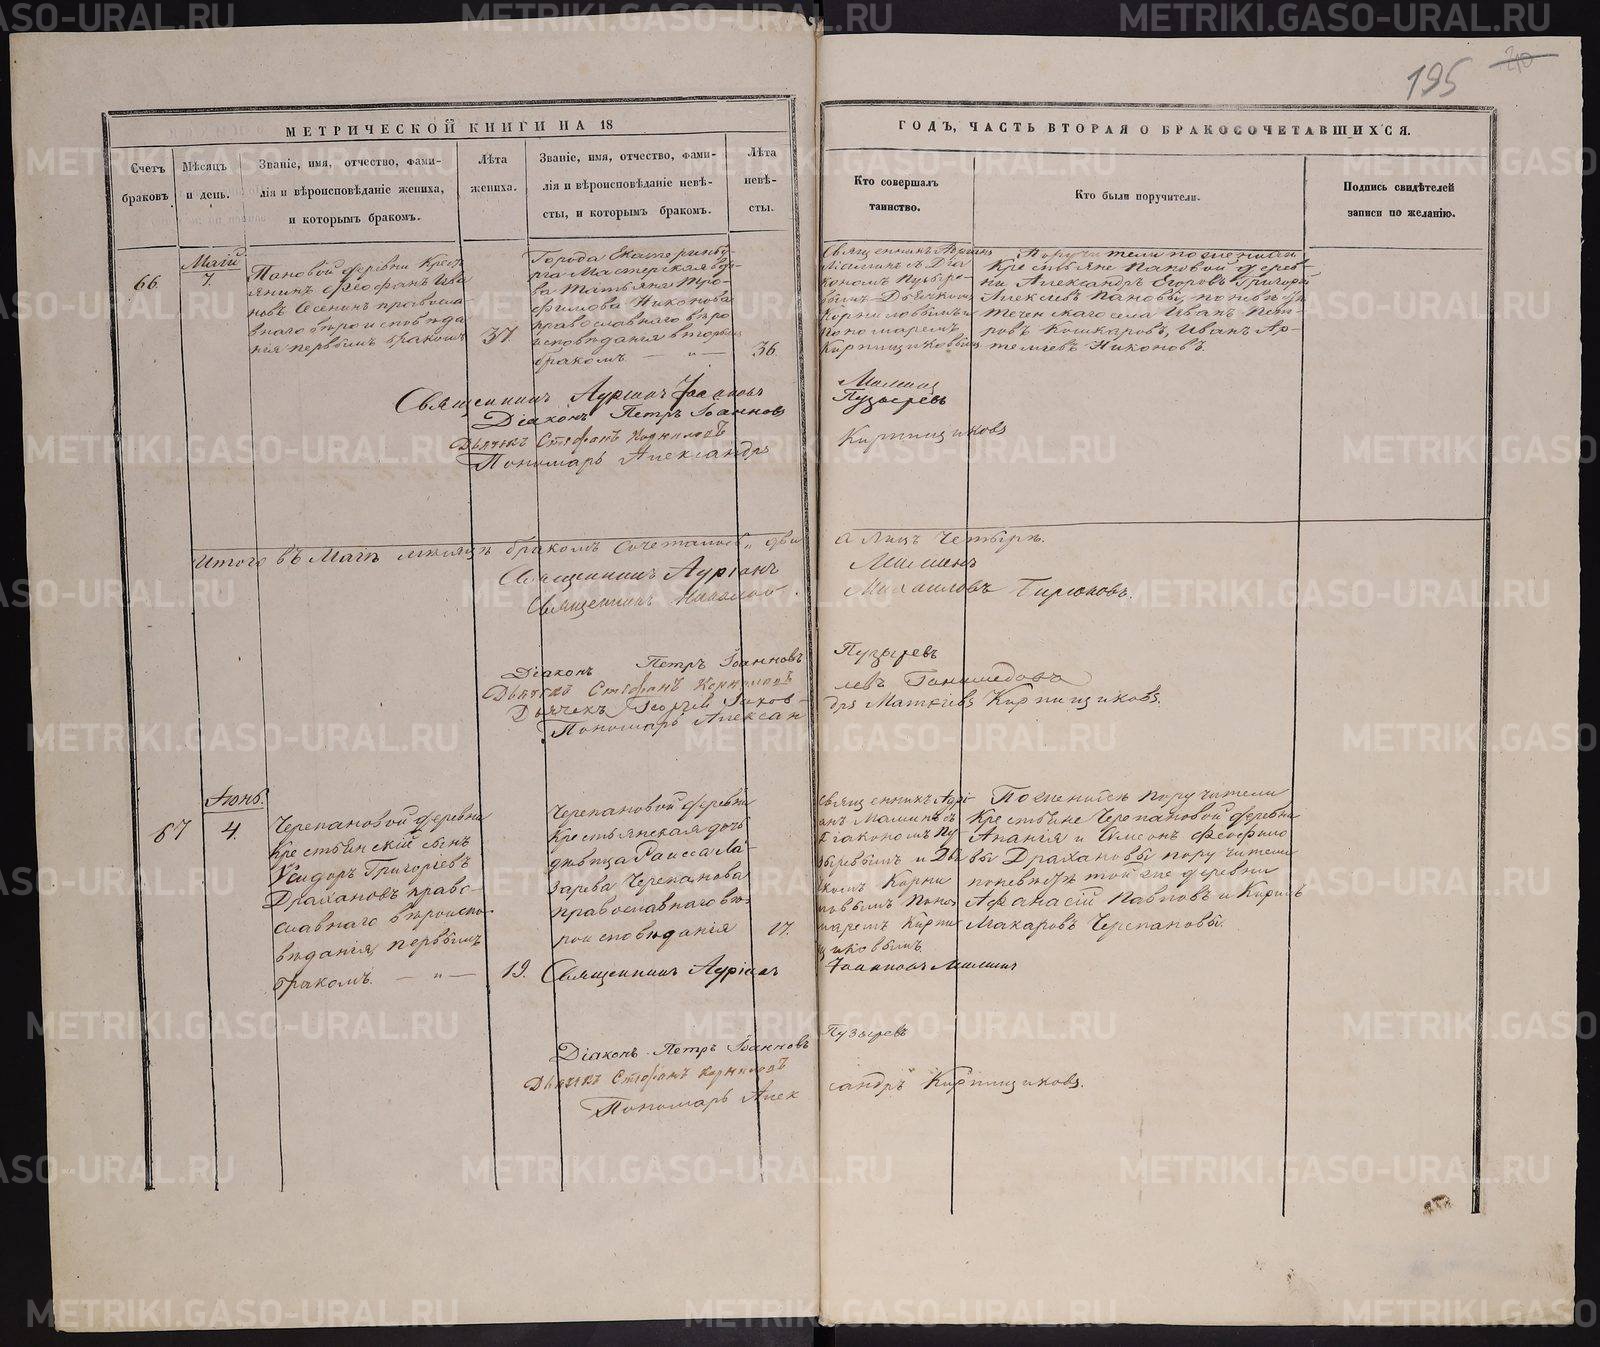 195
МЕТРИЧЕСКОЙ КНИГИ НА 18
ГОДЪ, ЧАСТЬ ВТОРАЯ О БРАКОСОЧЕТАВШИХСЯ.
Счетъ браковъ
Мѣсяцъ и день.
Званіе, имя, отчество, фами-
лія и вѣроисповѣданіе жениха,
и которымъ бракомъ.
Лѣта
жениха.
Званіе, имя, отчество, фами-
лія и вѣроисповѣданіе невѣ-
сты, и которымъ бракомъ.
Лѣта
невѣ-
сты.
Кто совершалъ
таинство.
Кто были поручители.
Подпись свидѣтелей
записи по желанію.
66.
Маій
7.
Пановой деревни Крест
янинъ Феофанъ Ива
новъ Осенинъ правосла
внаго вѣроисповѣда
нія первымъ бракомъ
37.
Города Екатеринбу
рга Мастерская вдо
ва Татьяна Тро
фимова Никонова
православнаго вѣро
исповѣданія вторым
бракомъ. — „ —
36.
Священникъ Адріанъ
Маминъ съ Діа
кономъ Пузыре
вымъ Дьячкомъ
Корниловымъ и
Пономаремъ
Кирпищиковымъ
Поручители по женихѣ
Крестьяне Пановой дерев
ни Александръ Егоровъ Григорій
Алексѣевъ Пановы, по невѣстѣ
теченскаго села Иванъ Пет
ровъ Кошкаровъ, Иванъ Ар-
темьевъ Никоновъ.
Священникъ Адріанъ Іоанновъ Маминъ
Діаконъ Петръ Іоанновъ Пузыревъ
Дьячекъ Стефанъ Корниловъ
Пономарь Александръ Кирпищиковъ
Итого въ Маіѣ месяцѣ бракомъ сочеталось „ два а Лицъ Четыри.
Священникъ Адріанъ Маминъ
Священникъ Николай Михаиловъ Бирюковъ.
Діаконъ Петръ Іоанновъ Пузыревъ
Дьячекъ Стефанъ Корниловъ
Дьячекъ Георгій Яков-
левъ
Пономарь Алексан
дръ Матвіевъ Кирпищиковъ.
67
Іюнь.
4.
Черепановой деревни
Крестьянскій сынъ
Исидоръ Григоріевъ
Драхановъ право-
славнаго вѣроиспо-
вѣданія, первымъ
бракомъ. — „ —
19.
Черепановой деревни
Крестьянская дочь
дѣвица Раисса Ла-
зарева Черепанова
православнаго вѣ-
роисповѣданія
17.
Священникъ Адрі-
анъ Маминъ съ
Діакономъ Пу
зыревымъ и Дья
чкомъ Корни
ловымъ Поно
маремъ Кирпи
щиковымъ
По женихѣ поручители
Крестьяне Черепановой деревни
Ананія и Симеонъ Феофило
вы Драхановы поручители
по невѣстѣ той же деревни
Афанасій Павловъ и Кирилъ
Макаровъ Черепановы.
Священникъ Адріанъ Іоанновъ Маминъ
Діаконъ Петръ Іоанновъ Пузыревъ
Дьячекъ Стефанъ Корниловъ
Пономарь Алек сандръ Кирпищиковъ.